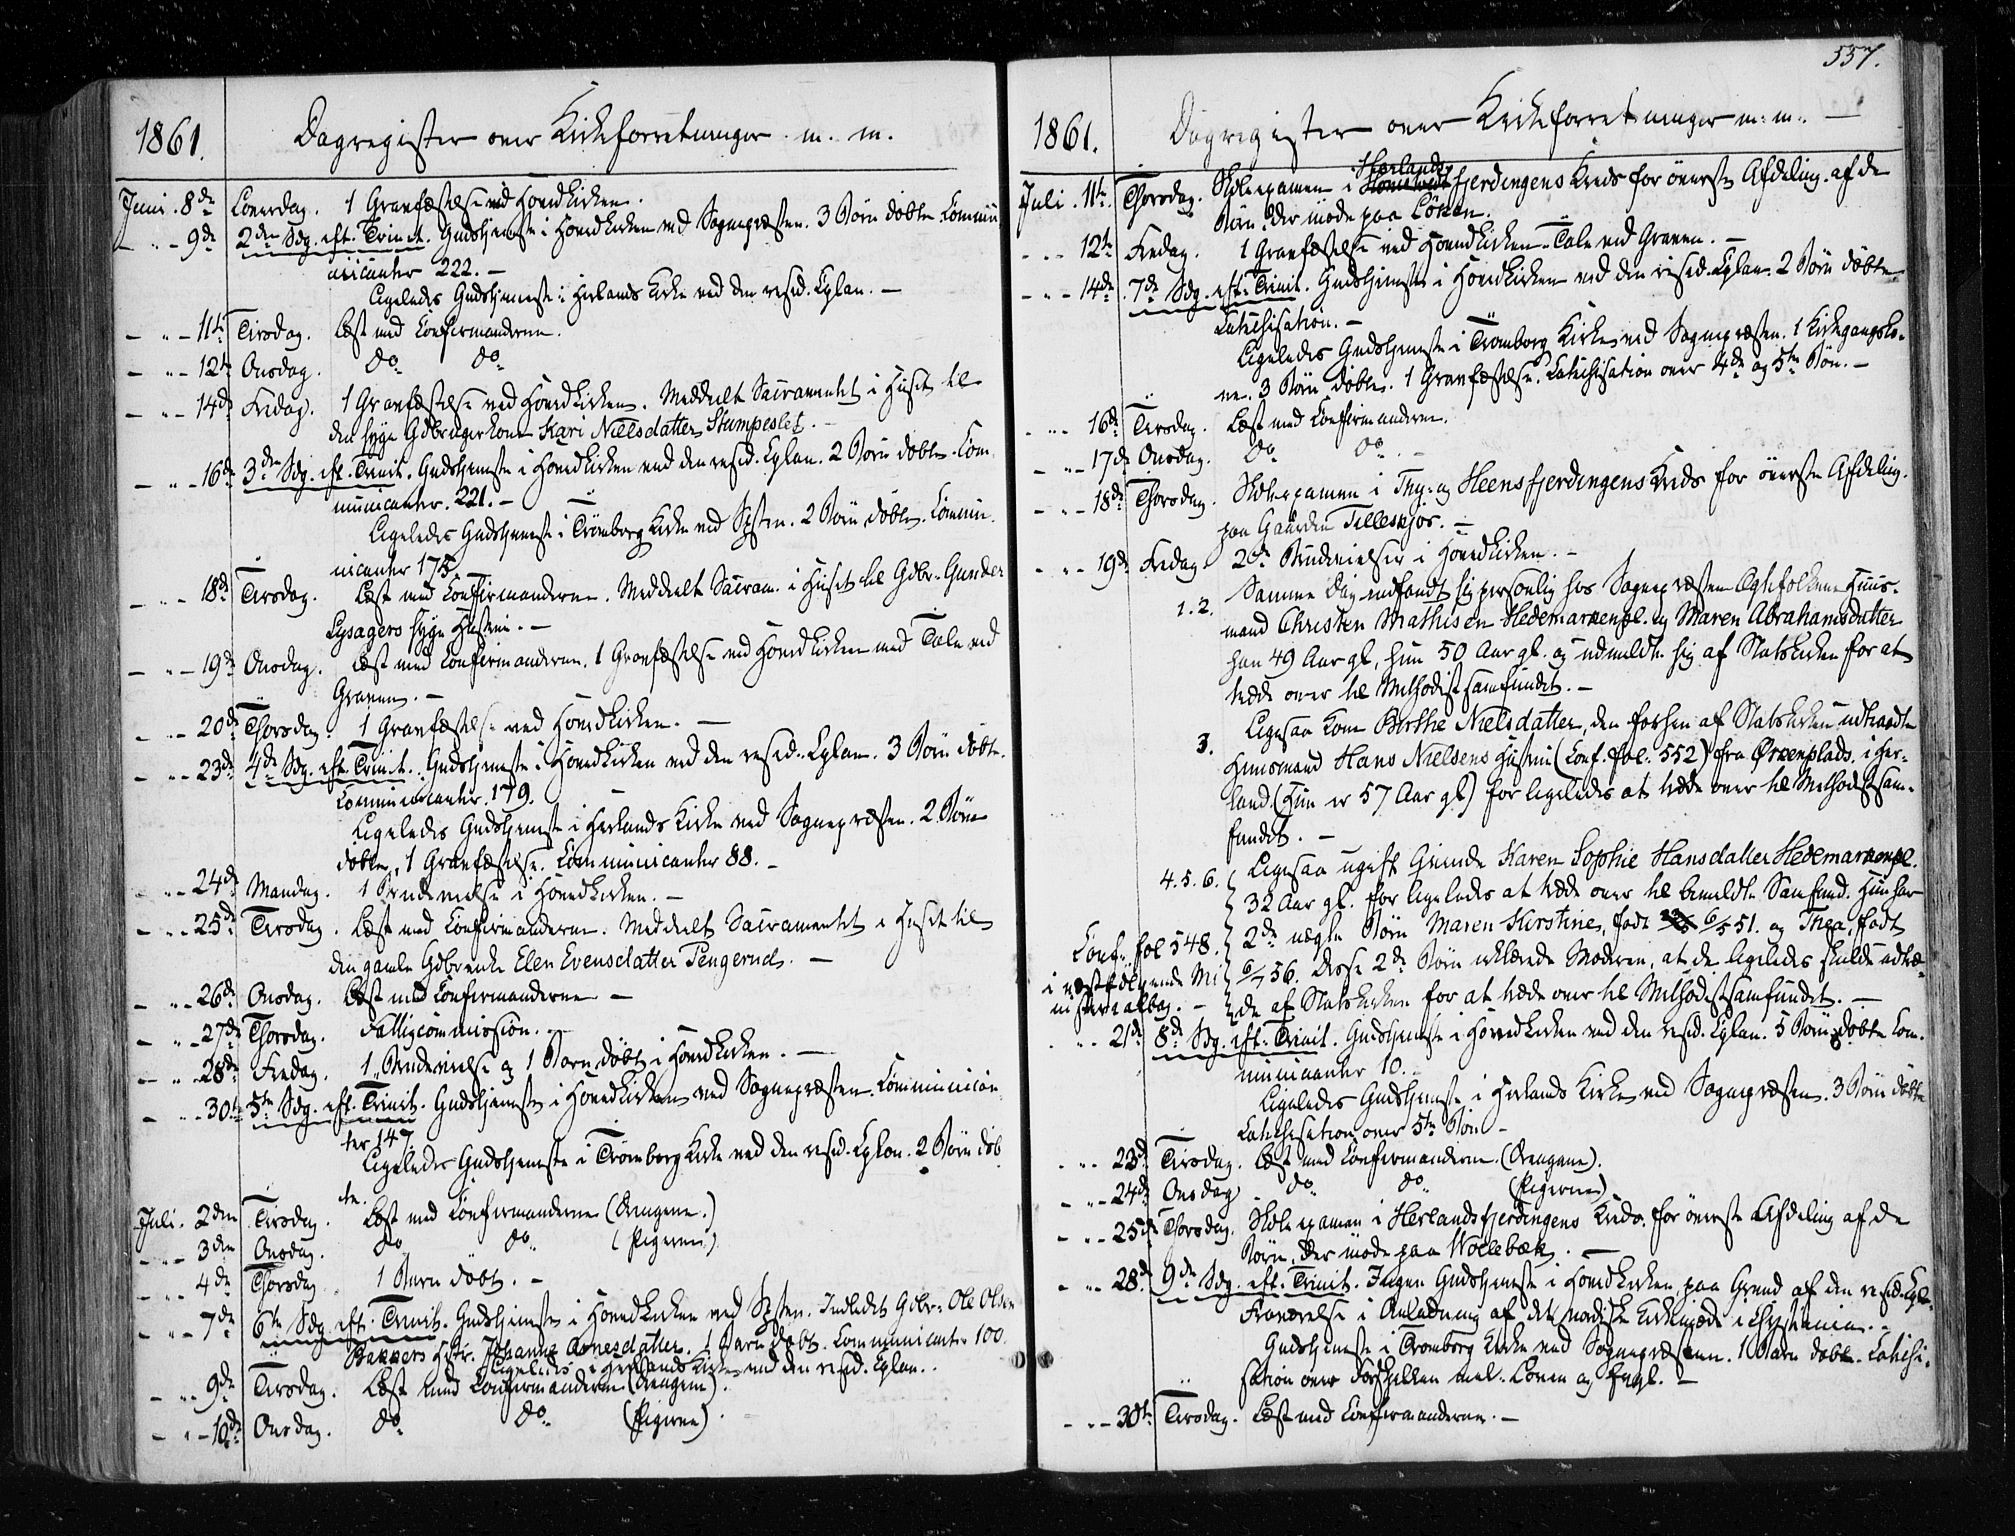 1861. Dagregister over Kirkeforretninger m. m.
Juni. 8de Løverdag. 1 Gravfæstelse ved Hovedkirken.
- " - 9de 2den Sdg. eft. Trinit. Gudstjeneste i Hovedkirken ved Sognepræsten. 3 Børn døbte. Commu-
nicanter 222. -
Ligeledes Gudstjeneste i Herlands Kirke ved den resid. Cplan. -
- " - 11te Tirsdag. Læst med Confirmanderne.
- " - 12te Onsdag. do. do.
- " - 14de Fredag. 1 Gravfæstelse ved Hovedkirken. Meddeelt Sacramentet i Huset til
den syge Gdbrugerkone Kari Nielsdatter Stumpeslet. -
- " - 16de 3de Sdg. eft. Trinit. Gudstjeneste i Hovedkirken ved den resid. Cplan. 2 Børn døbte. Com-
municanter. 221. -
Ligeledes Gudstjeneste i Trømborg Kirke ved Spsten. 2 Børn døbte. Commu-
nicanter 175.
- " - 18de Tirsdag. Læst med Confirmanderne. Meddeelt Sacram. i Huset til Gdbr. Gunder
Lysagers syge Hustru. -
- " - 19de Onsdag. Læst med Confirmanderne. 1 Gravfæstelse ved Hovedkirken med Tale ved
Graven. -
- " - 20de Thorsdag. 1 Gravfæstelse ved Hovedkirken. -
- " - 23de 4de Sdg. eft. Trinit. Gudstjeneste i Hovedkirken ved den resid. Cplan. 3 Børn døbte.
Communicanter. 179.
Ligeledes Gudstjeneste i Herlands Kirke ved Sognepræsten. 2 Børn
døbte, 1 Gravfæstelse. Communicanter 88. -
- " - 24de Mandag. 1 Brudevielse i Hovedkirken. -
- " - 25de Tirsdag. Læst med Confirmanderne. Meddeelt Sacramentet i Huset til
den gamle Gdbrenke Elen Evensdatter Tengerud. -
- " - 26de Onsdag. Læst med Confirmanderne -
- " - 27de Thorsdag. Fattigcommission. -
- " - 28de Fredag. 1 Brudevielse og 1 Barn døbt i Hovedkirken. -
- " - 30te 5te Sdg. eft. Trinit. Gudstjeneste i Hovedkirken ved Sognepræsten. Communican-
ter 147.
Ligeledes Gudstjeneste i Trømborg Kirke ved den resid. Cplan. 2 Børn døb-
te.
Juli. 2den Tirsdag. Læst med Confirmanderne (Drengene.)
- " - 3den Onsdag. do. do. (Pigerne.)
- " - 4de Thorsdag. 1 Barn døbt. -
- " - 7de 6te Sdg. eft. Trinit. Gudstjeneste i Hovedkirken ved Spsten. Indledet Gdbr. Ole Olsen
Bakkers Hstr. Johanne Arnesdatter. 1 Barn døbt. Communicanter 100.
Ligeledes i Herlands Kirke ved den resid. Cplan.
- " - 9de Tirsdag. Læst med Confirmanderne (Drengene).
- " - 10de Onsdag. do. do. (Pigerne).
557.
1861. Dagregister over Kirkeforretninger m. m. -
Herlands
Juli. 11te Thorsdag. Skoleexamen i fjerdingens Kreds for øverste Afdeling af de
Børn, der møde paa Lønen.
- " - 12te Fredag. 1 Gravfæstelse ved Hovedkirken. Tale ved Graven. -
- " - 14de 7de Sdg. eft. Trinit. Gudstjeneste i Hovedkirken ved den resid. Cplan. 2 Børn døbte
Catechisation. -
Ligeledes Gudstjeneste i Trømborg Kirke ved Sognepræsten. 1 Kirkegangsko-
ne. 3 Børn døbte. 1 Gravfæstelse. Catechisation over 4de og 5te Bøn. -
- " - 16de Tirsdag. Læst med Confirmanderne.
- " - 17de Onsdag. do. do. -
- " - 18de Thorsdag. Skoleexamen i Thy- og Heensfjerdingens Kreds for øverste Afdeling.
paa Gaarden Tillesskjør. -
- " - 19de Fredag. 2de Brudevielser i Hovedkirken. -
1. 2. Samme Dag indfandt sig personlig hos Sognepræsten Egtefolkene Huus-
mand Christen Mathisen Hedemarkenpl. og Maren Abrahamsdatter
han 49 Aar gl., hun 50 Aar gl. og udmeldte sig af Statskirken for at
træde over til Methodistsamfundet. -
3. Ligesaa kom Birthe Nielsdatter, den forhen af Statskirken udtraadte
Huusmand Hans Nielsens Hustru (Conf. fol. 552) fra Ørkenplads i Her-
land (Hun er 57 Aar gl.) for ligeledes at træde over til Methodistsam-
fundet. -
4. 5. 6. Ligesaa ugift Qvinde Karen Sophie Hansdatter Hedemarkenpl.
32 Aar gl. for ligeledes at træde over til bemeldte Samfund. Hun har
Conf. fol 548. 2de uægte Børn Maren Kirstine, født 6/5 51. og Thea, født
i næstfølgende Mi- 6/7 56. Disse 2de Børn erklærede Moderen, at de ligeledes skulde udtræ-
nisterialbog. - de af Statskirken for at træde over til Methodistsamfundet. -
- " - 21de 8de Sdg. eft. Trinit. Gudstjeneste i Hovedkirken ved den resid. Cplan. 5 Børn døbte. Com-
municanter 10. -
Ligeledes Gudstjeneste i Herlands Kirke ved Sognepræsten. 3 Børn døbte
Catechisation over 5te Bøn -
- " - 23de Tirsdag. Læst med Confirmanderne. (Drengene).
- " - 24de Onsdag do. do. (Pigerne)
- " - 25de Thorsdag. Skoleexamen i Herlandsfjerdingens Kreds. for øverste Afdeling af de
Børn, der møde paa Wollebæk. -
- " - 28de 9de Sdg. eft. Trinit. Ingen Gudstjeneste i Hovedkirken paa Grund af den resid. Cpl.
Fraværelse i Anledning af det nordiske Kirkemøde i Christiania. -
Gudstjeneste i Trømborg Kirke ved Sognepræsten. 1 Barn døbt. Catechi-
sation over Forskjellen mel. Loven og Evgl. -
- " - 30te Tirsdag. Læst med Confirmanderne. -